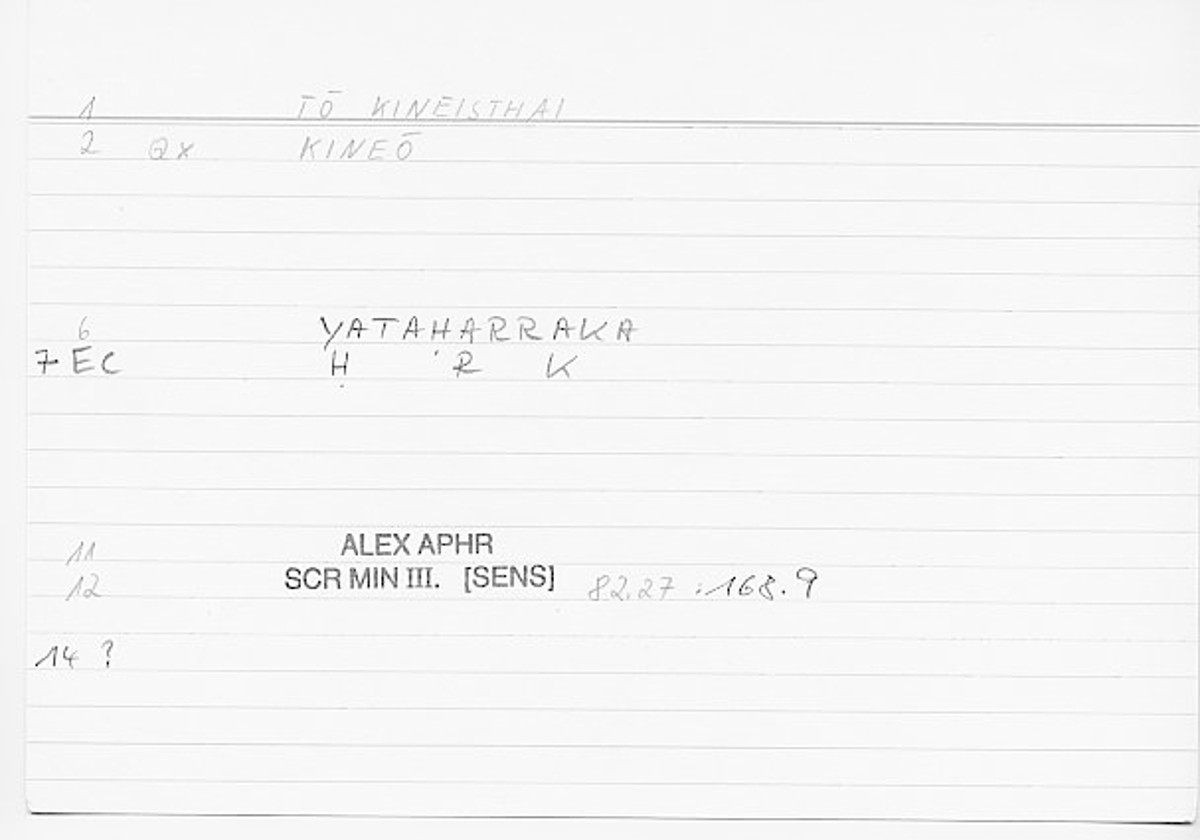 1 TŌ KINEĪSTHAI
2 Qx KINEŌ
6 YATAḤARRAKA
7 EC Ḥ R K
11 ALEX APHR
12 SCR MIN III. [SENS] 82.27 : 168.9
14 ?